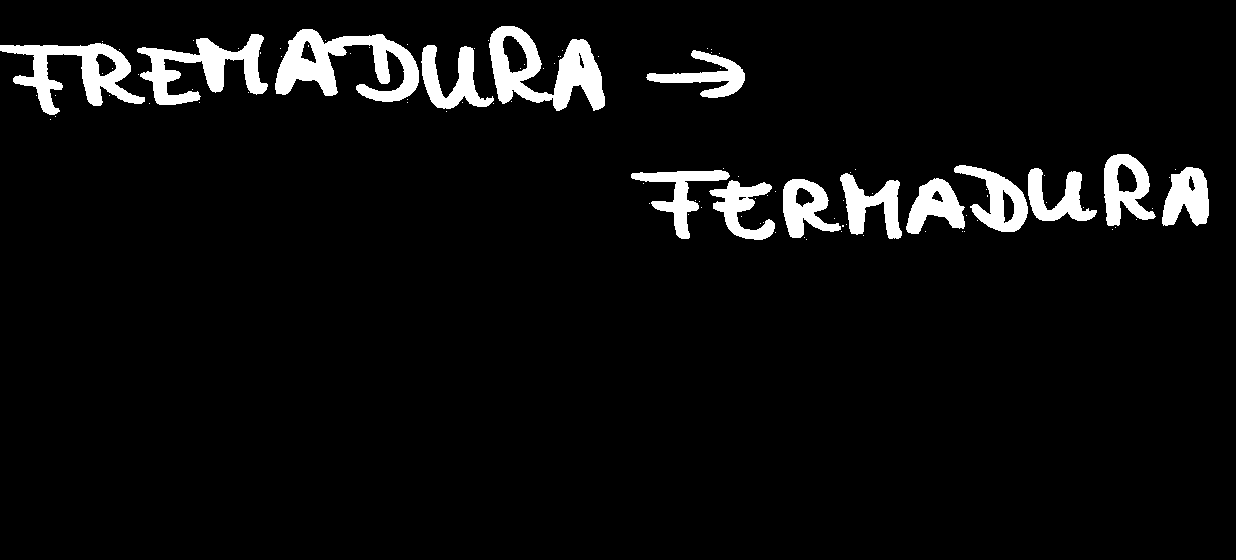 FREMADURA →
FERMADURA